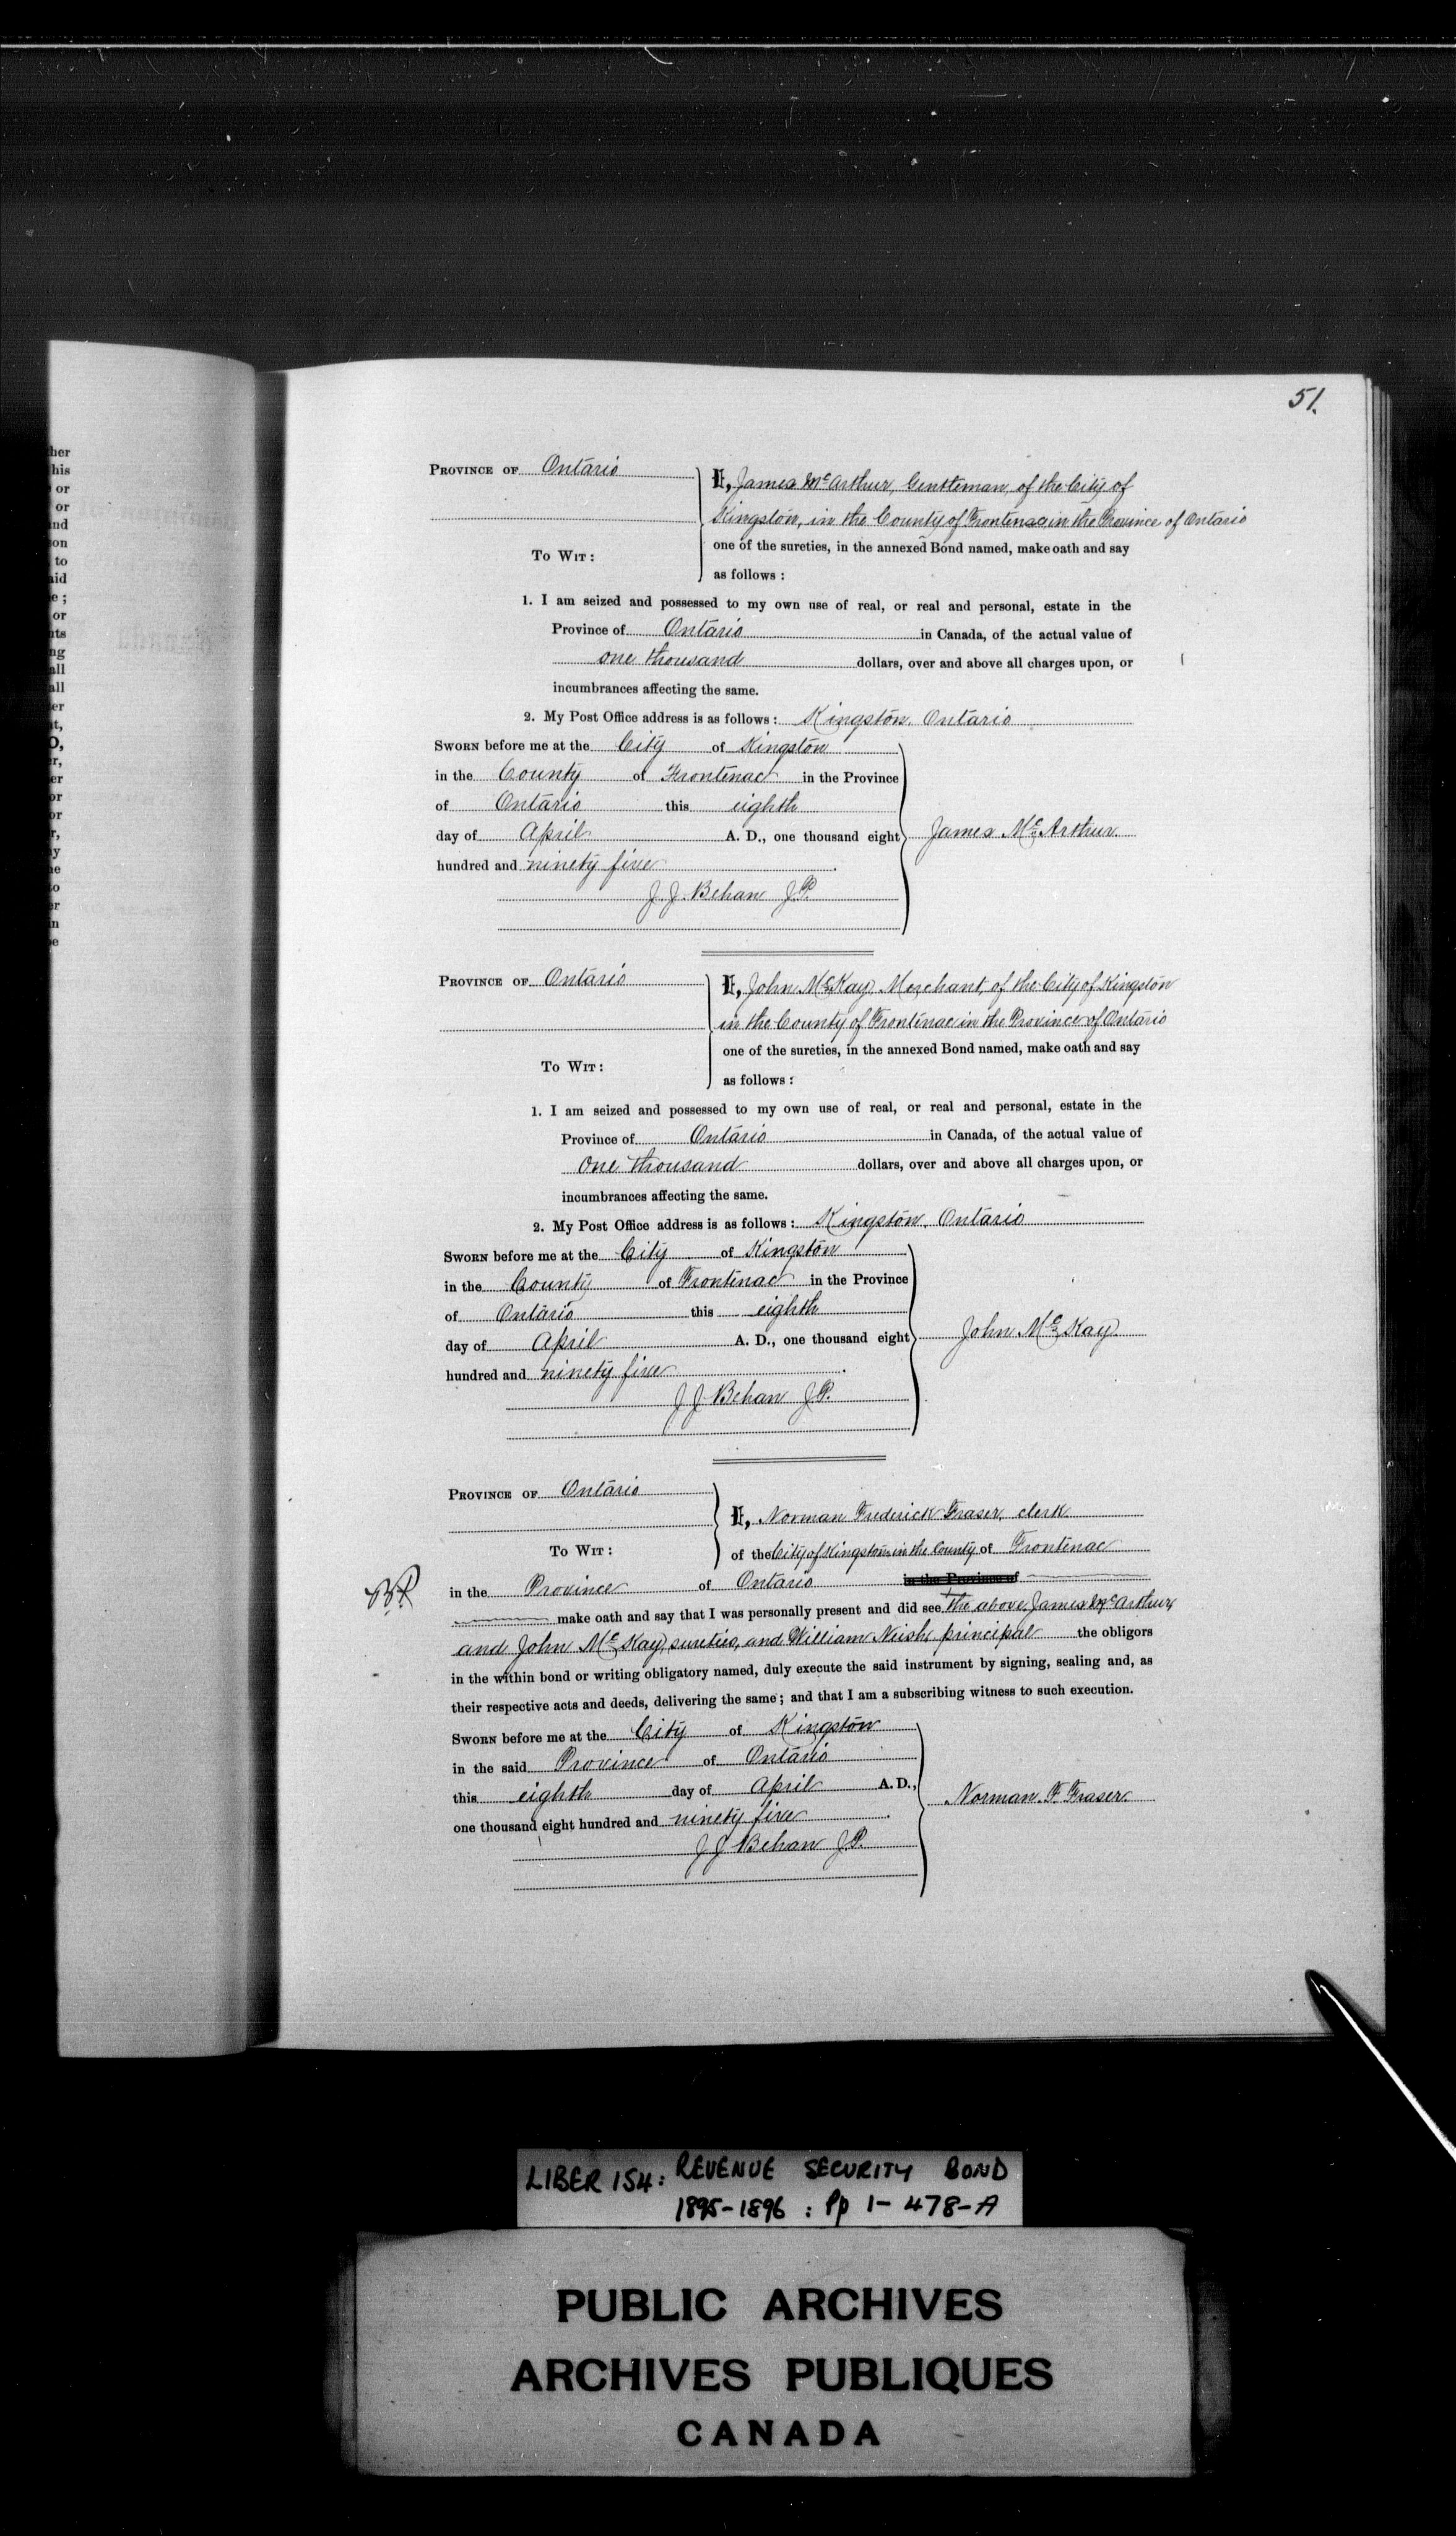 51.
her
his
or
or
and
on
to
aid
e ;
or
nts
ng
all
all
er
nt,
D,
er,
er
or
or
r,
y
e
to
er
n
e
PROVINCE OF Ontario
I, James McArthur, Gentleman, of the City of
Kingston, in the County of Frontenac in the Province of Ontario
one of the sureties, in the annexed Bond named, make oath and say
TO WIT:
as follows :
1. I am seized and possessed to my own use of real, or real and personal, estate in the
Province of Ontario in Canada, of the actual value of
one thousand dollars, over and above all charges upon, or
incumbrances affecting the same.
2. My Post Office address is as follows: Kingston, Ontario
SWORN before me at the City of Kingston
in the County of Frontenac in the Province
of Ontario this eighth
day of April A. D., one thousand eight
James McArthur
hundred and ninety five.
J. J. Behan J.P.
PROVINCE OF Ontario
I, John McKay, Merchant, of the City of Kingston
in the County of Frontenac in the Province of Ontario
one of the sureties, in the annexed Bond named, make oath and say
TO WIT:
as follows :
1. I am seized and possessed to my own use of real, or real and personal, estate in the
Province of Ontario in Canada, of the actual value of
One thousand dollars, over and above all charges upon, or
incumbrances affecting the same.
2. My Post Office address is as follows: Kingston, Ontario
SWORN before me at the City of Kingston
in the County of Frontenac in the Province
of Ontario this eighth
day of April A. D., one thousand eight
John McKay
hundred and ninety five.
J J Behan J.P.
PROVINCE OF Ontario
I, Norman Frederick Fraser, clerk
TO WIT:
of the City of Kingston in the County of Frontenac
in the Province of Ontario in the Province of
make oath and say that I was personally present and did see the above James McArthur
and John McKay, sureties, and William Neish principal the obligors
in the within bond or writing obligatory named, duly execute the said instrument by signing, sealing and, as
their respective acts and deeds, delivering the same; and that I am a subscribing witness to such execution.
SWORN before me at the City of Kingston
in the said Province of Ontario
this eighth day of April A. D.,
Norman. F Fraser
one thousand eight hundred and ninety five.
J J Behan J.P.
LIBER 154: REVENUE SECURITY BOND
1895-1896 : Pp 1-478-A
PUBLIC ARCHIVES
ARCHIVES PUBLIQUES
CANADA